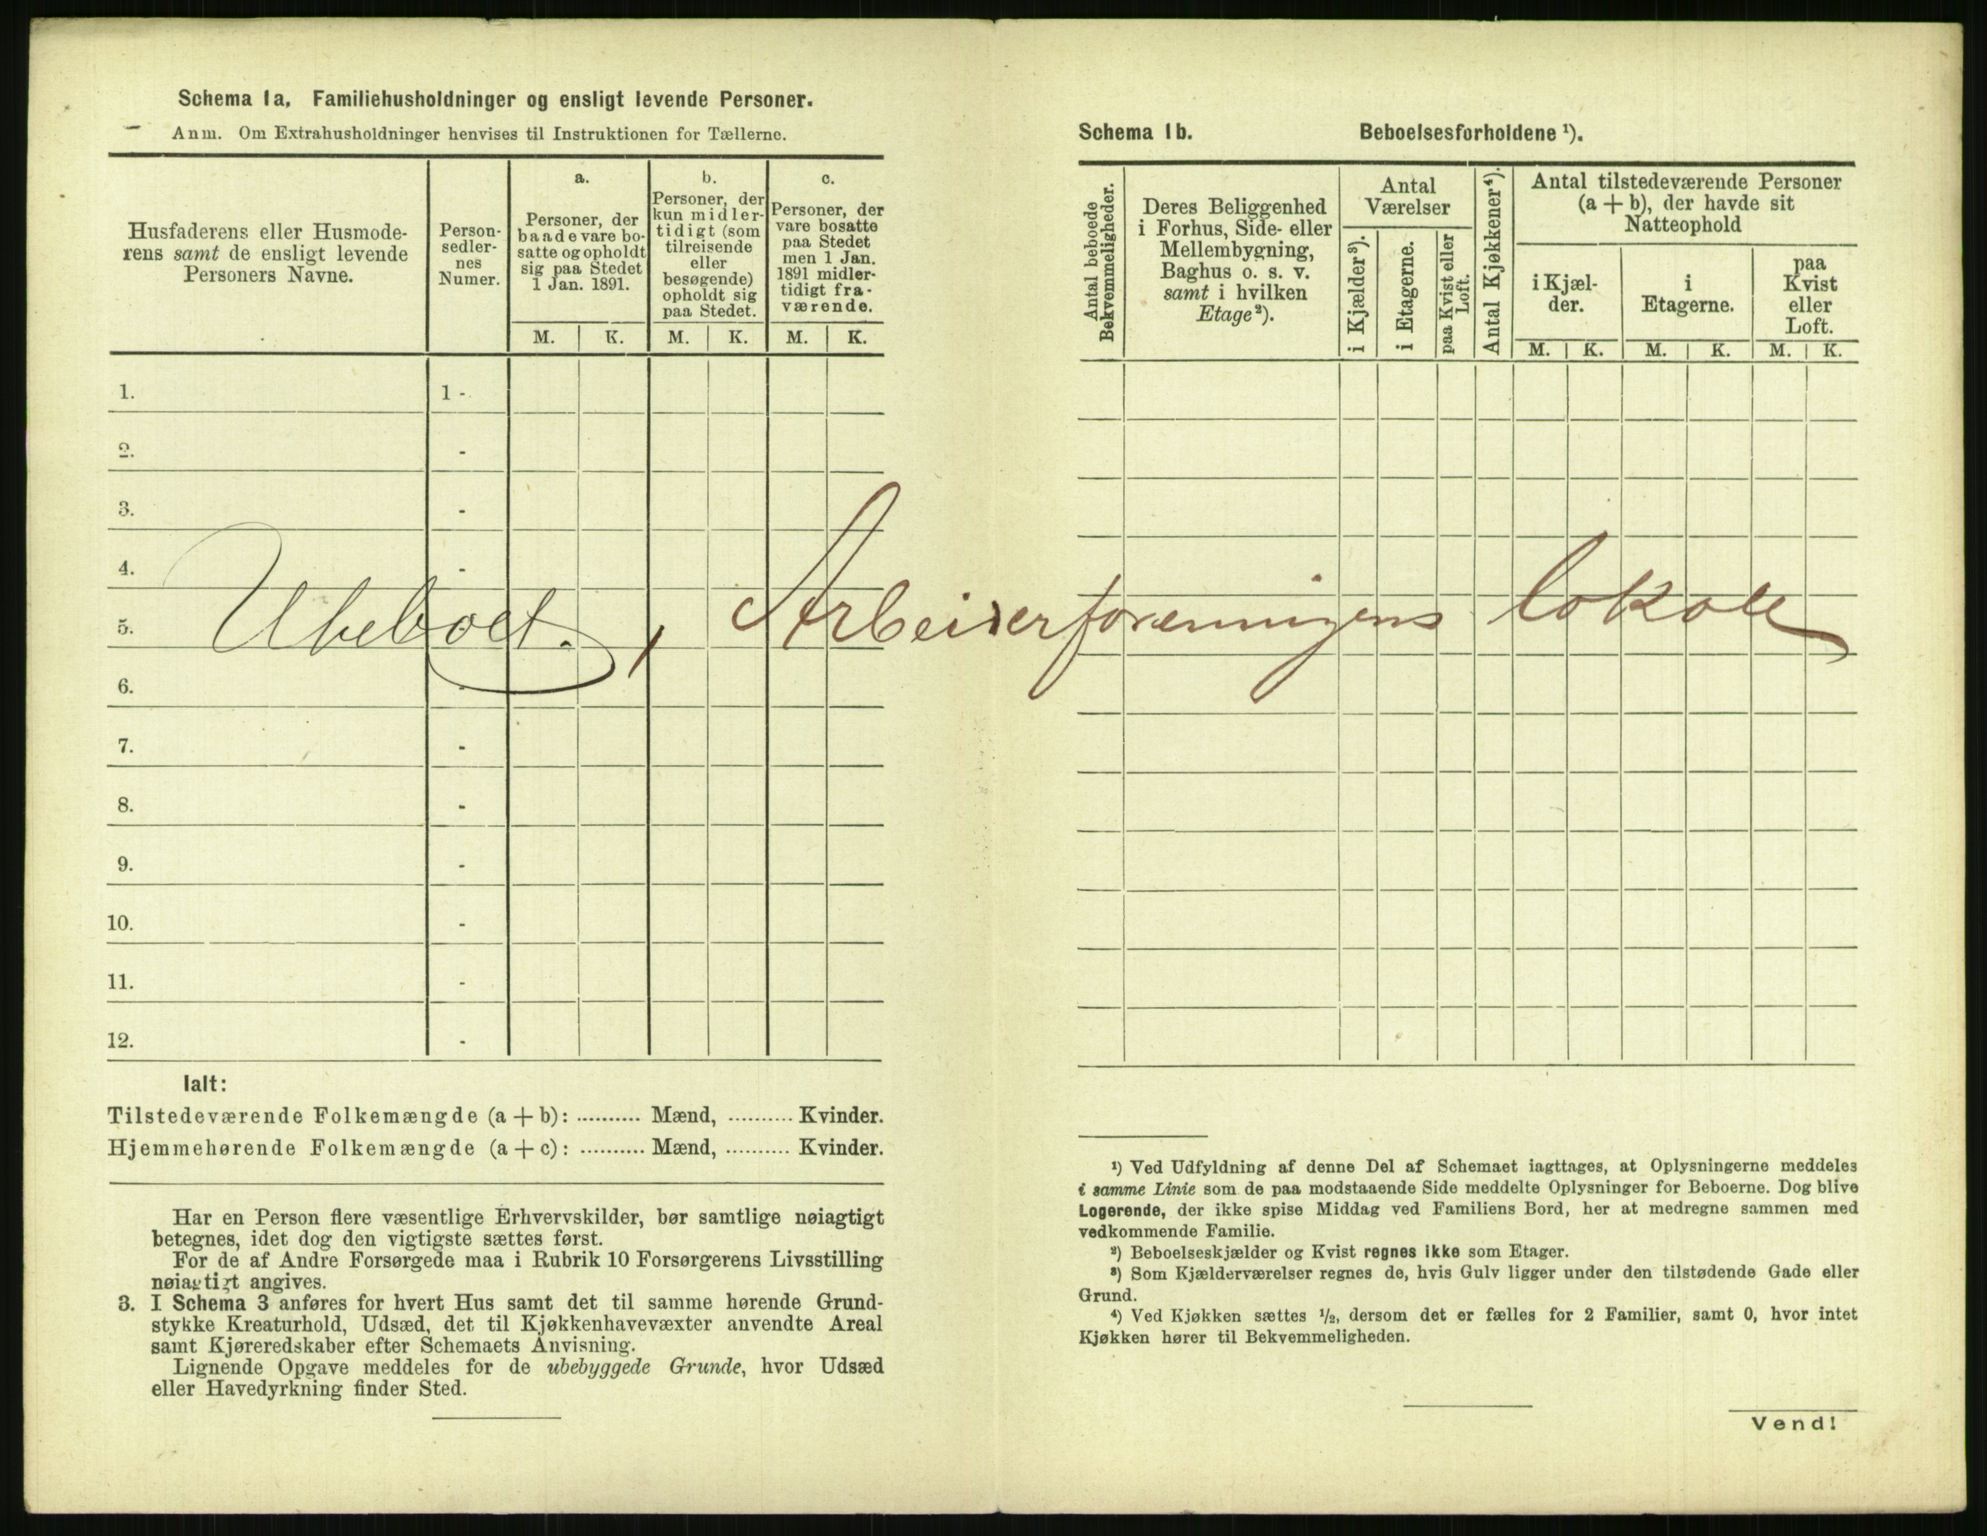 Schema 1a. Familiehusholdninger og ensligt levende Personer.
Anm. Om Extrahusholdninger henvises til Instruktionen for Tællerne.
Husfaderens eller Husmode-
rens samt de ensligt levende
Personers Navne.
Person-
sedler-
nes
Numer.
a.
Personer, der
baade vare bo-
satte og opholdt
sig paa Stedet
1 Jan. 1891.
b.
Personer, der
kun midler-
tidigt (som
tilreisende
eller
besøgende)
opholdt sig
paa Stedet.
c.
Personer, der
vare bosatte
paa Stedet
men 1 Jan.
1891 midler-
tidigt fra-
værende.
M. K. M. K. M. K.
1. 1 -
2. -
3. -
4. -
5.
6. -
7. -
8. -
9. -
10. -
11. -
12. -
Ubeboet. , Arbeiderforeningens lokale
Ialt:
Tilstedeværende Folkemængde (a + b): .......... Mænd, .......... Kvinder.
Hjemmehørende Folkemængde (a + c): .......... Mænd, .......... Kvinder.
Har en Person flere væsentlige Erhvervskilder, bør samtlige nøiagtigt
betegnes, idet dog den vigtigste sættes først.
For de af Andre Forsørgede maa i Rubrik 10 Forsørgerens Livsstilling
nøiagtigt angives.
3. I Schema 3 anføres for hvert Hus samt det til samme hørende Grund-
stykke Kreaturhold, Udsæd, det til Kjøkkenhavevæxter anvendte Areal
samt Kjøreredskaber efter Schemaets Anvisning.
Lignende Opgave meddeles for de ubebyggede Grunde, hvor Udsæd
eller Havedyrkning finder Sted.
Schema 1b. Beboelsesforholdene ¹).
Antal beboede
Bekvemmeligheder.
Deres Beliggenhed
i Forhus, Side- eller
Mellembygning,
Baghus o. s. v.
samt i hvilken
Etage²).
Antal
Værelser
i Kjælder³).
i Etagerne.
paa Kvist eller
Loft.
Antal Kjøkkener⁴).
Antal tilstedeværende Personer
(a + b), der havde sit
Natteophold
i Kjæl-
der.
i
Etagerne.
paa
Kvist
eller
Loft.
M. K. M. K. M. K.
¹) Ved Udfyldning af denne Del af Schemaet iagttages, at Oplysningerne meddeles
i samme Linie som de paa modstaaende Side meddelte Oplysninger for Beboerne. Dog blive
Logerende, der ikke spise Middag ved Familiens Bord, her at medregne sammen med
vedkommende Familie.
²) Beboelseskjælder og Kvist regnes ikke som Etager.
³) Som Kjælderværelser regnes de, hvis Gulv ligger under den tilstødende Gade eller
Grund.
⁴) Ved Kjøkken sættes ½, dersom det er fælles for 2 Familier, samt 0, hvor intet
Kjøkken hører til Bekvemmeligheden.
Vend!